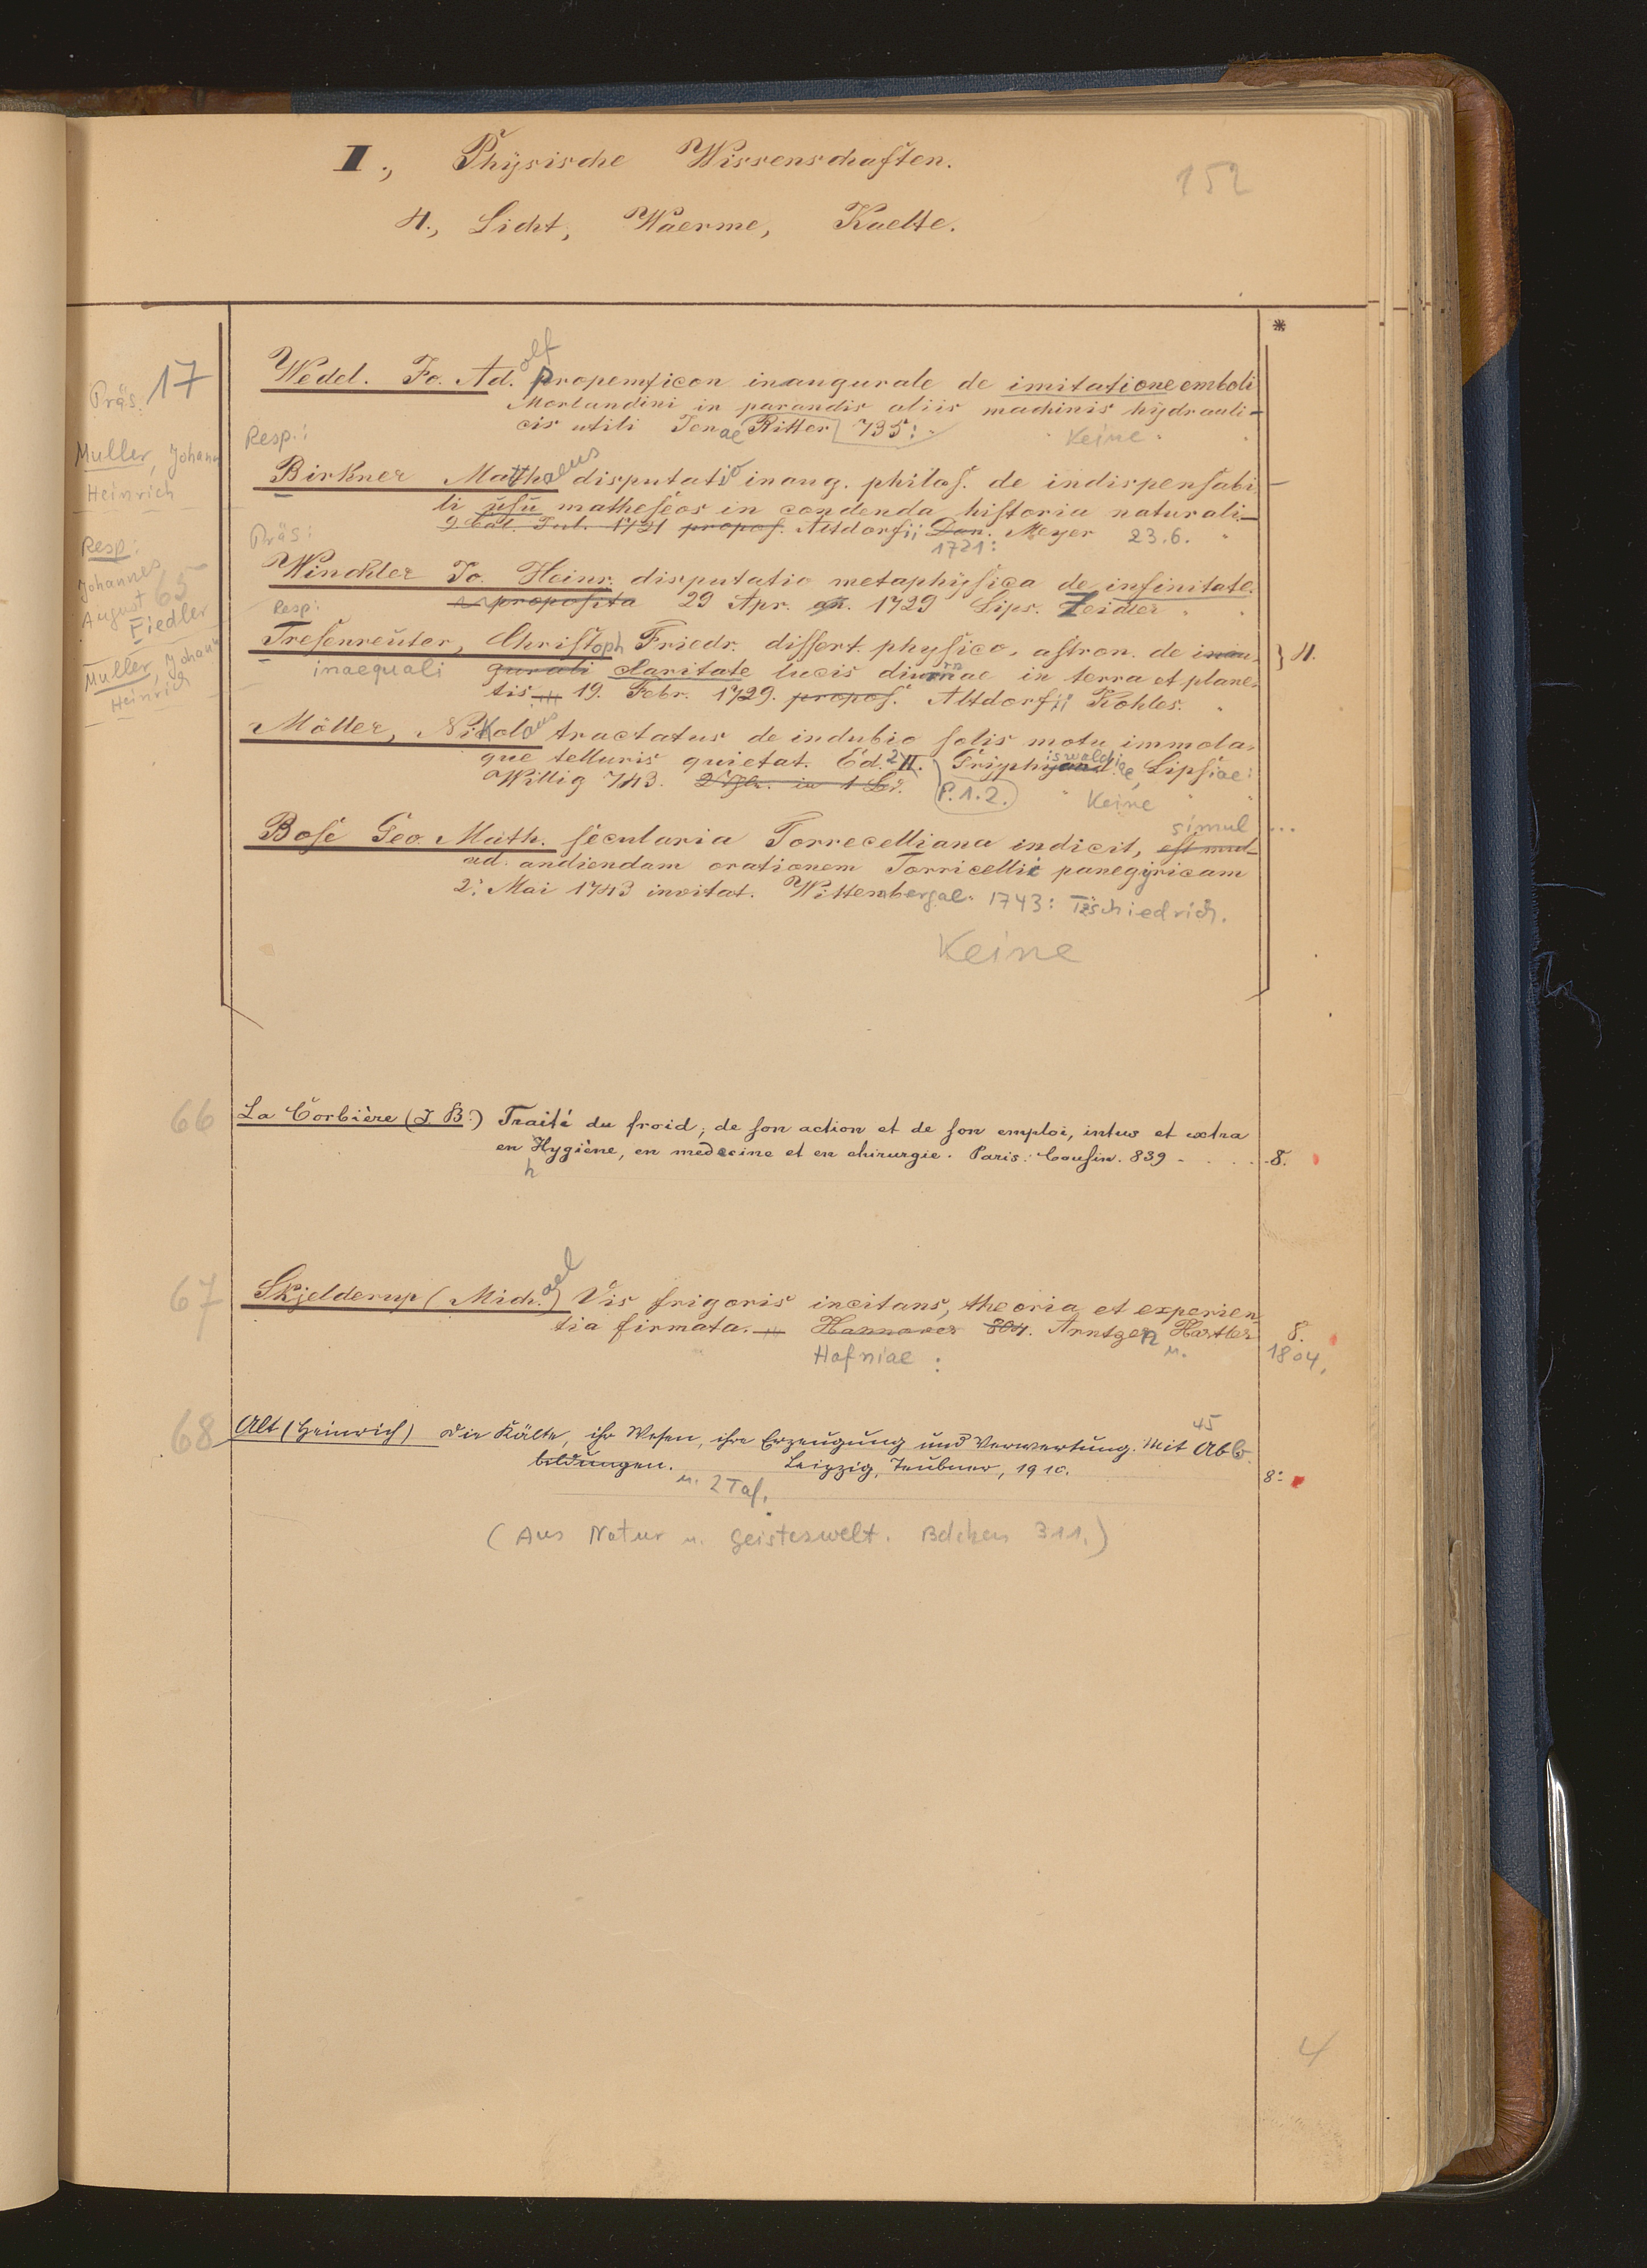 I., Physische Wissenschaften.
152
4., Licht, Waerme, Kaelte.
*
Präs. 17
Wedel. Jo. Ad.olf propempticon inaugurale de imitatione emboli
Morlandini in parandis aliis machinis hydrauli-
cis utili Jenae Ritter 735:
Keine
Muller, Johann
Heinrich
Resp.:
Birkner Matthaeus disputatio inaug. philos. de indispensabi-
li usu matheseos in condenda historia naturali
9 Cal. Jul. 1721 propos. Altdorfii Dan. Meyer 23.6.
1721:
Resp:
Johannes
August
Fiedler
65
Präs:
Winckler Jo. Heinr. disputatio metaphysica de infinitate.
proposita 29 Apr. an. 1729 Lips. Zeidler
Muller, Johann
Heinrich
Resp:
Tresenreuter, Christoph Friedr. dissert. physico. astron. de inae-
inaequali qurali claritate lucis diurnae in terra et plane-
tis 19. Febr. 1729. propos. Altdorfii Kohles.
} 4.
Möller, Nikolaus tractatus de indubio solis motu immota-
que telluris quietat. Ed. 2 II. Gryphiswaldiae, Lipsiae:
Willig 743. 2 Thle. in 1 Bd. P. 1.2. Keine
simul
Bose Geo. Math. secularia Torrecelliana indicit, est mul
ad. audiendam orationem Torricellii panegyricam
2. Mai 1743 invitat. Wittenbergae. 1743: Tzschiedrich.
Keine
66 La Corbière (J. B.) Traité du froid, de son action et de son emploi, intus et extra
en Hygiène, en medecine et en chirurgie. Paris: Cousin. 839 8.
h
67 Skjelderup (Mich.ael) Vis frigoris incitans, theoria et experien-
tia firmata. Hannover 804. Arntzen Hartier 8.
Hafniae : u. 1804.
68 Alt (Heinrich) Die Kälte, ihr Wesen, ihre Erzeugung und Verwertung. Mit 45 Abb.
bildungen. Leipzig, Teubner, 1910. 8:
u. 2 Taf.
(Aus Natur u. Geisteswelt. Bdchen 311.)
4